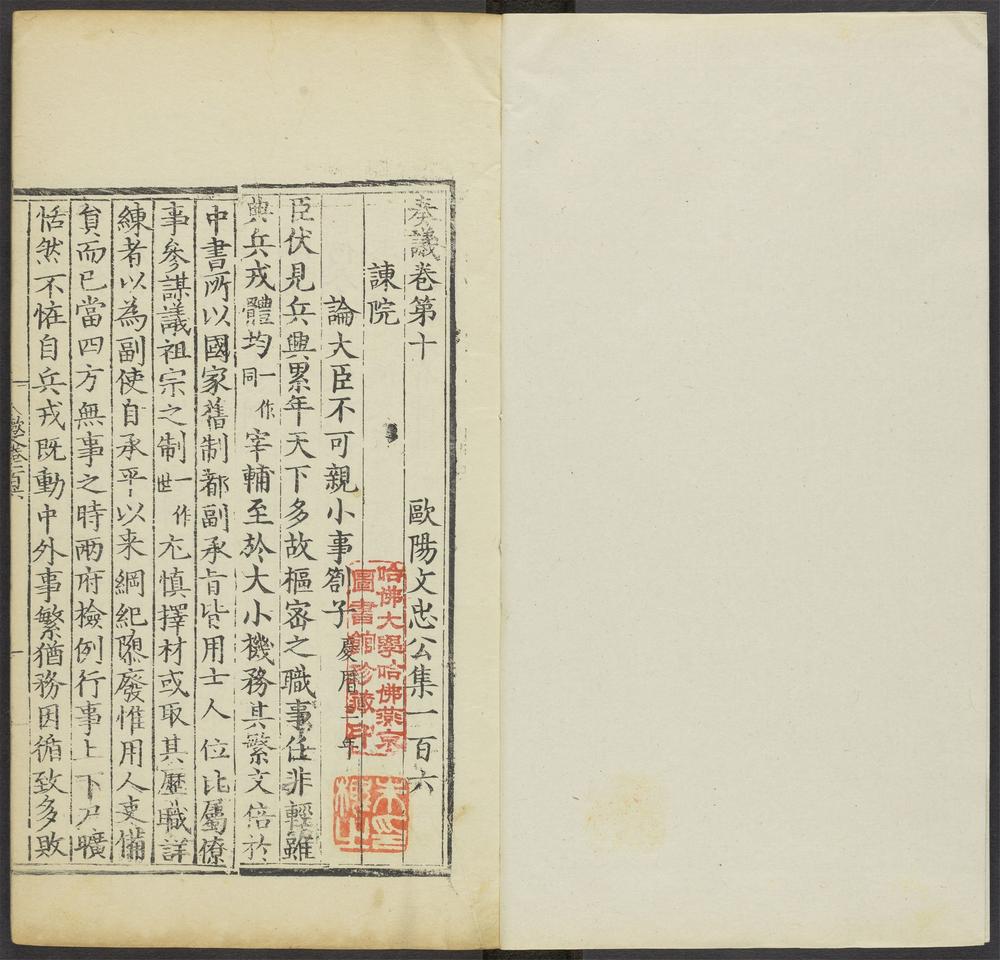 奏議卷第十 歐陽文忠公集一百六
諫院
論大臣不可親小事劄子 慶曆二年
臣伏見兵興累年天下多故樞密之職事任非輕雖
典兵戎體均一作同宰輔至於大小機務其繁文倍於
中書所以國家舊制都副承旨皆用士人位比屬僚
事參謀議祖宗之制一作世尤慎擇材或取其歷職詳
練者以為副使自承平以来綱紀隳廢惟用人吏備
負而已當四方無事之時兩府檢例行事上下尸曠
恬然不恠自兵戎既動中外事繁猶務因循致多敗
歐卷一百六
哈佛大學哈佛燕京
圖書館珍藏印